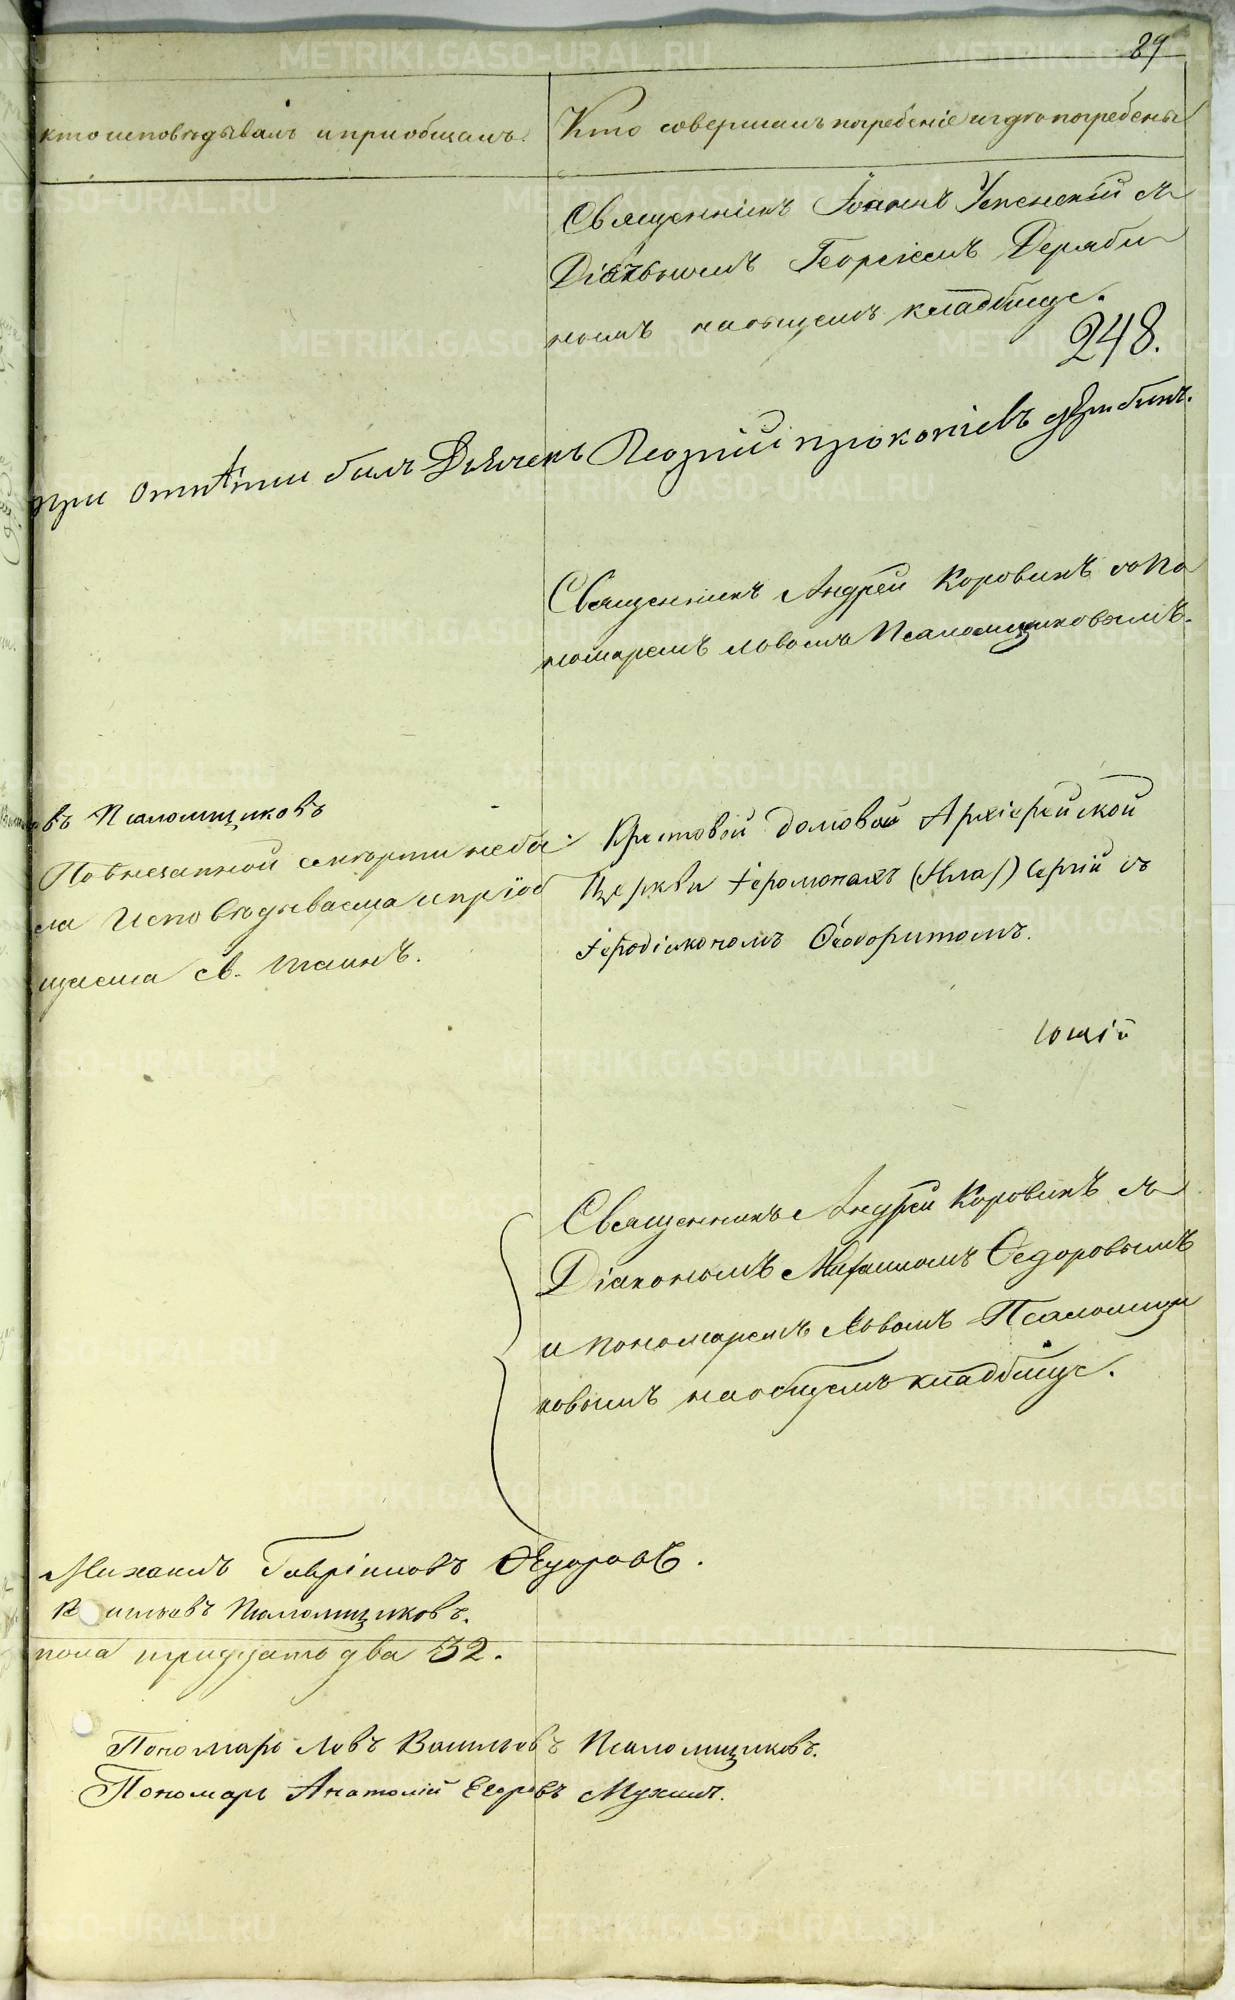 89
кто исповѣдывалъ и приобщалъ.
Кто совершалъ погребеніе и гдѣ погребены
Священникъ Іоаннъ Успенскій съ
Діячкомъ Георгіемъ Деряби
нымъ на общемъ кладбищѣ.
248.
при отпѣтіи былъ Дьячекъ Георгій прокопіевъ дерябинъ.
Священникъ Андрей Коровинъ со по
номаремъ Львомъ Псаломщиковымъ.
въ Псаломщиковъ
По внезапной смѣрти небы
ла Исповѣдываема и пріоб
щаема св. Таинъ.
Крестовой домовой Архіерейской
Церкви Іеромонахъ Сергій съ
Іеродіакономъ Ѳеодоритомъ.
ющій
Священникъ Андрей Коровинъ съ
Діакономъ Михаиломъ Ѳедоровымъ
и пономаремъ Львомъ Псаломщи
ковымъ на общемъ кладбищѣ.
Михаилъ Гавріиловъ Ѳедоровъ.
Васильевъ Псаломщиковъ.
пола тридцать два 32.
Пономарь Левъ Васильевъ Псаломщиковъ.
Пономарь Анатолій Егоровъ Мухинъ.
METRIKI.GASO-URAL.RU